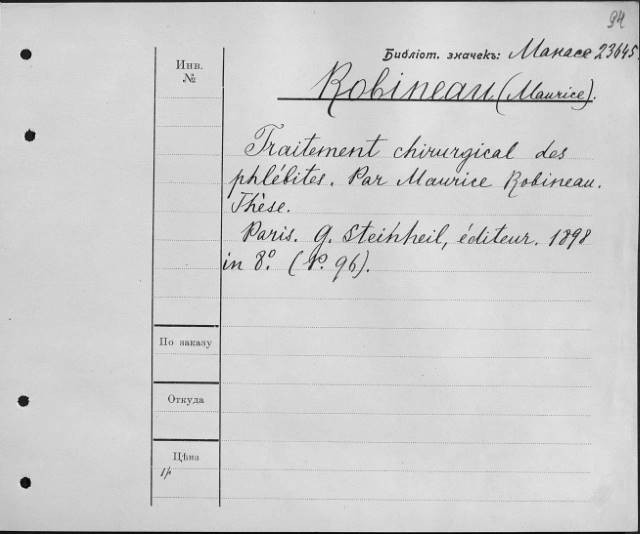 94
Библіот. значекъ: Манасе 23645.
Инв.
№
Robineau (Maurice).
Traitement chirurgical des
phlébites. Par Maurice Robineau.
Thèse.
Paris. G. Steinheil, éditeur. 1898
in 8º. (P. 96).
По заказу
Откуда
Цѣна